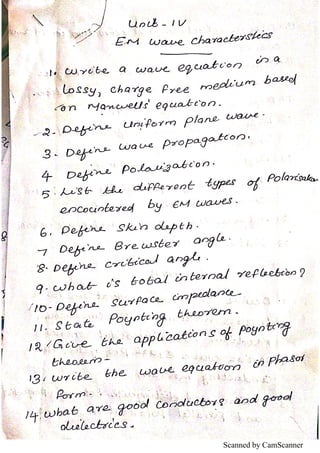 Unit - IV
EM wave characterstics
1. write a wave equation in a
lossy, charge free medium based
on Maxwells' equation.
2. Define uniform plane wave.
3. Define wave propagation.
4 Define Polarization.
5. List the different types of Polarisation
encountered by EM waves.
6. Define skin depth.
7 Define Brewster angle.
8. Define critical angle.
9. what is total internal reflection?
10. Define surface impedance
11. State Poynting theorem.
12. Give the applications of poynting
theorem-
13. write the wave equation in Phasor
form.
14. what are good conductors and good
dielectrics.
Scanned by CamScanner